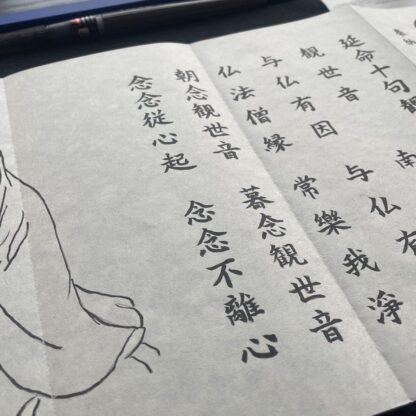 延命十句
観世音 南
与仏有因 与仏有
仏法僧縁 常樂我淨
朝念観世音 暮念観世音
念念從心起 念念不離心